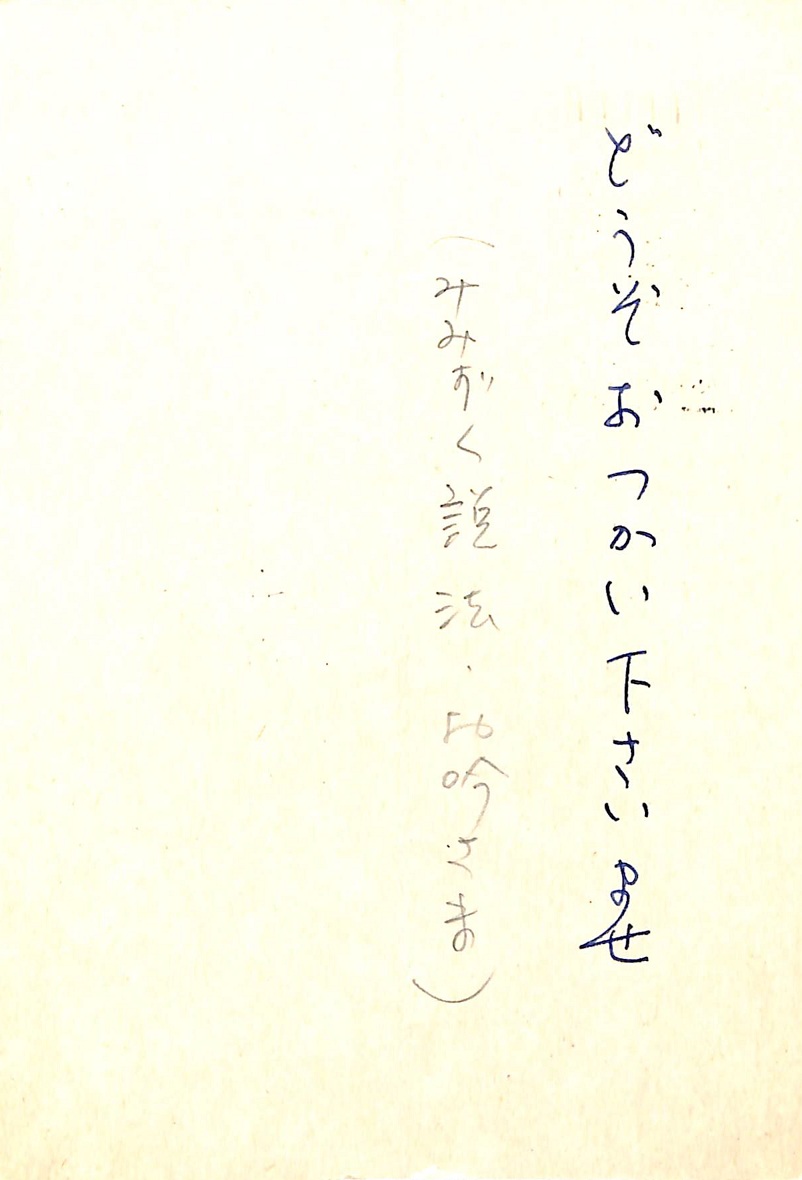 どうぞおつかい下さいませ
(みみずく説法・お吟さま)